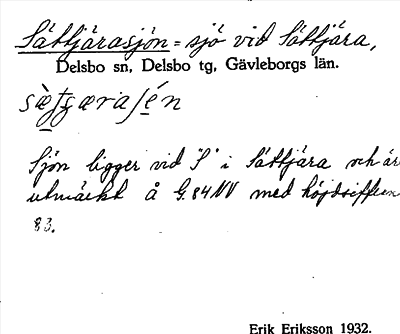 Sättjärasjön = sjö vid Sättjära,
Delsbo sn, Delsbo tg, Gävleborgs län.
Sjön ligger vid "S" i Sättjära och är
utmärkt å G. 84 NV med höjdsiffran
83.
Erik Eriksson 1932.